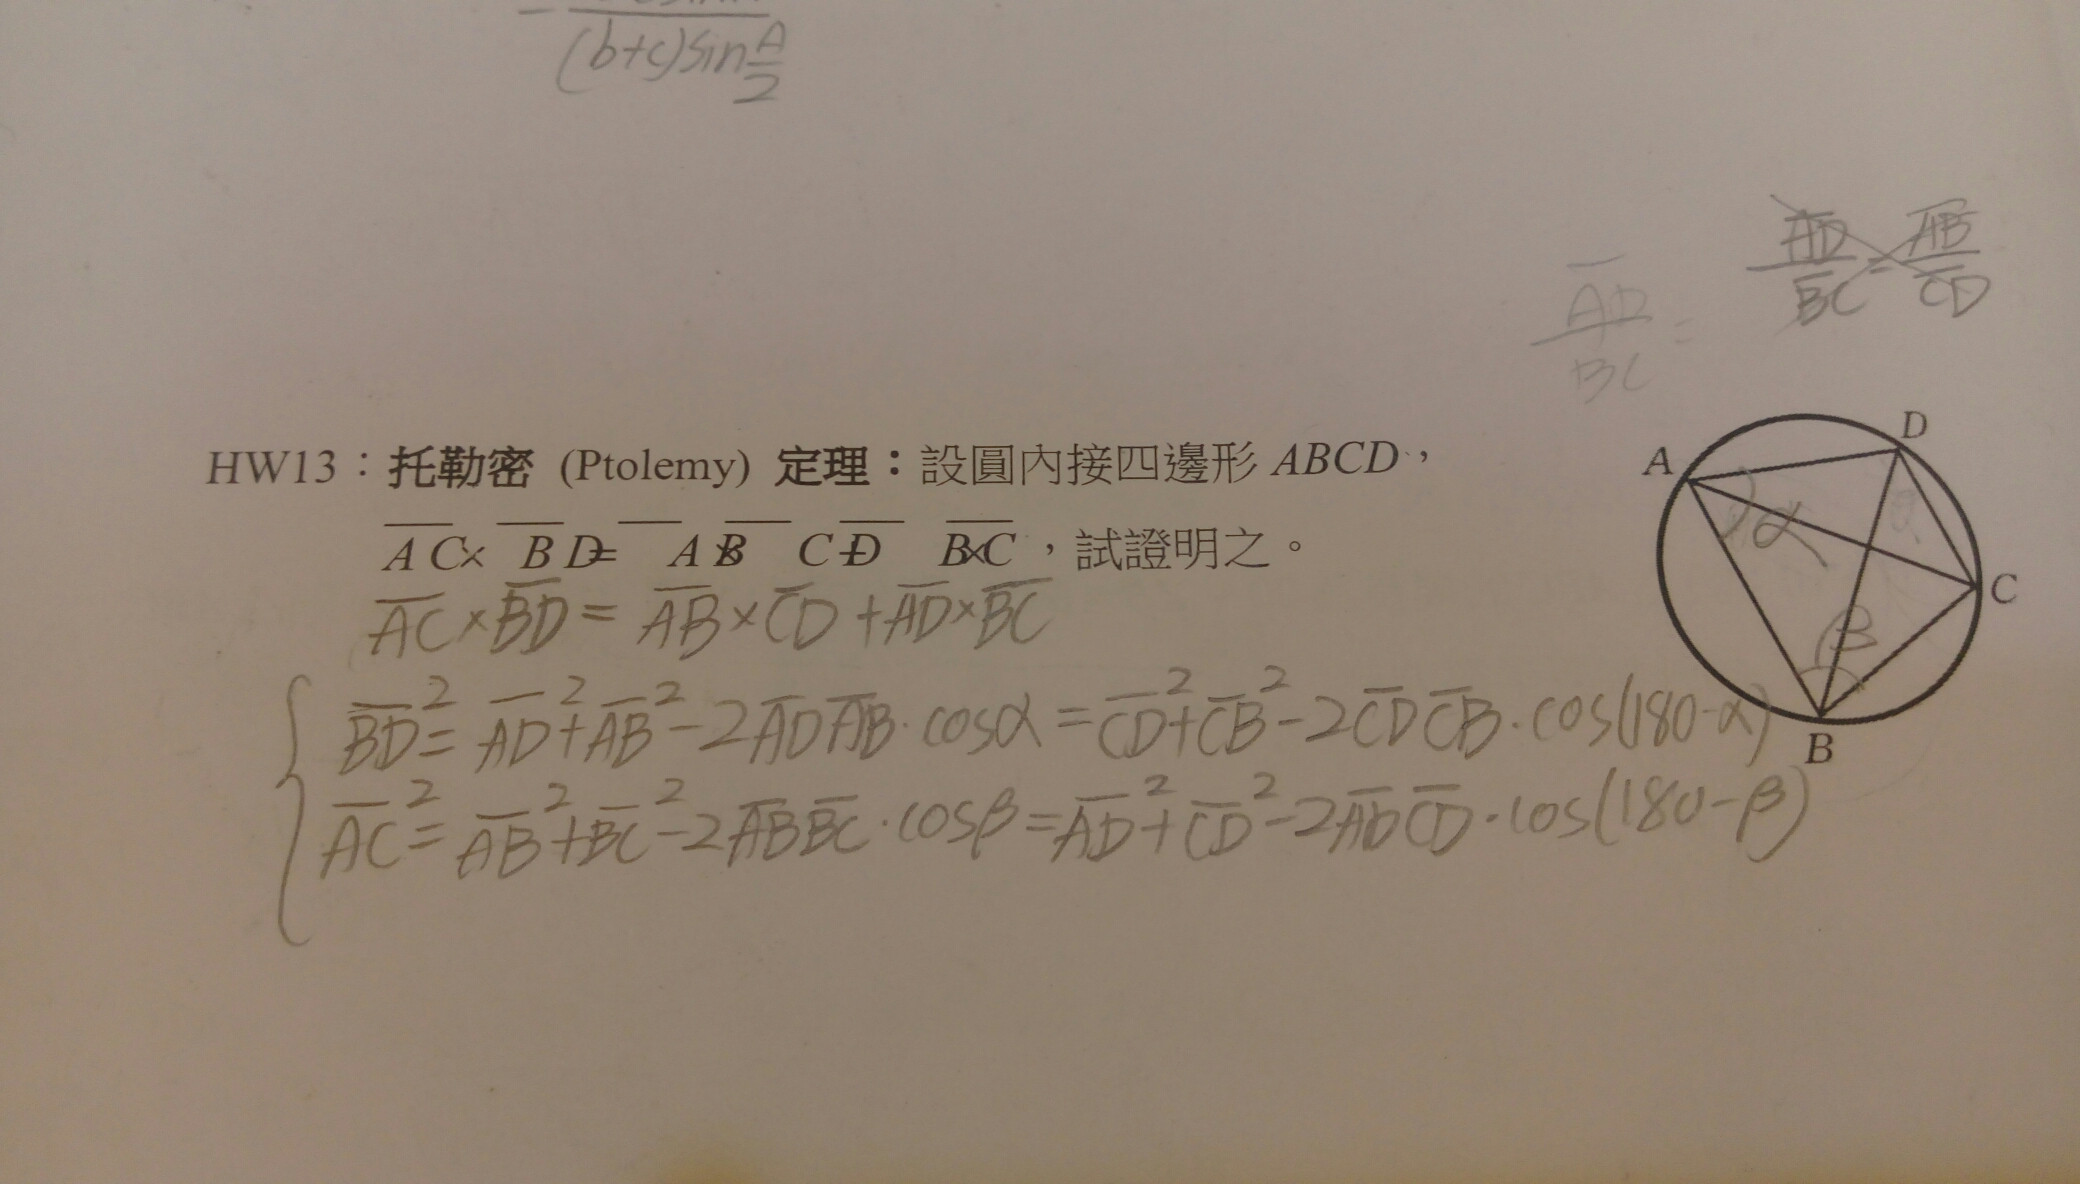 (b+c)sin A/2
AD/BC = AB/CD
AD/BC =
HW13：托勒密 (Ptolemy) 定理：設圓內接四邊形 ABCD，
AC × BD = AB × CD + B×C，試證明之。
AC × BD = AB × CD + AD × BC
BD² = AD² + AB² - 2AD AB · cosα = CD² + CB² - 2CD CB · cos(180-α)
AC² = AB² + BC² - 2AB BC · cosβ = AD² + CD² - 2AD CD · cos(180-β)
D
A
α
C
β
B